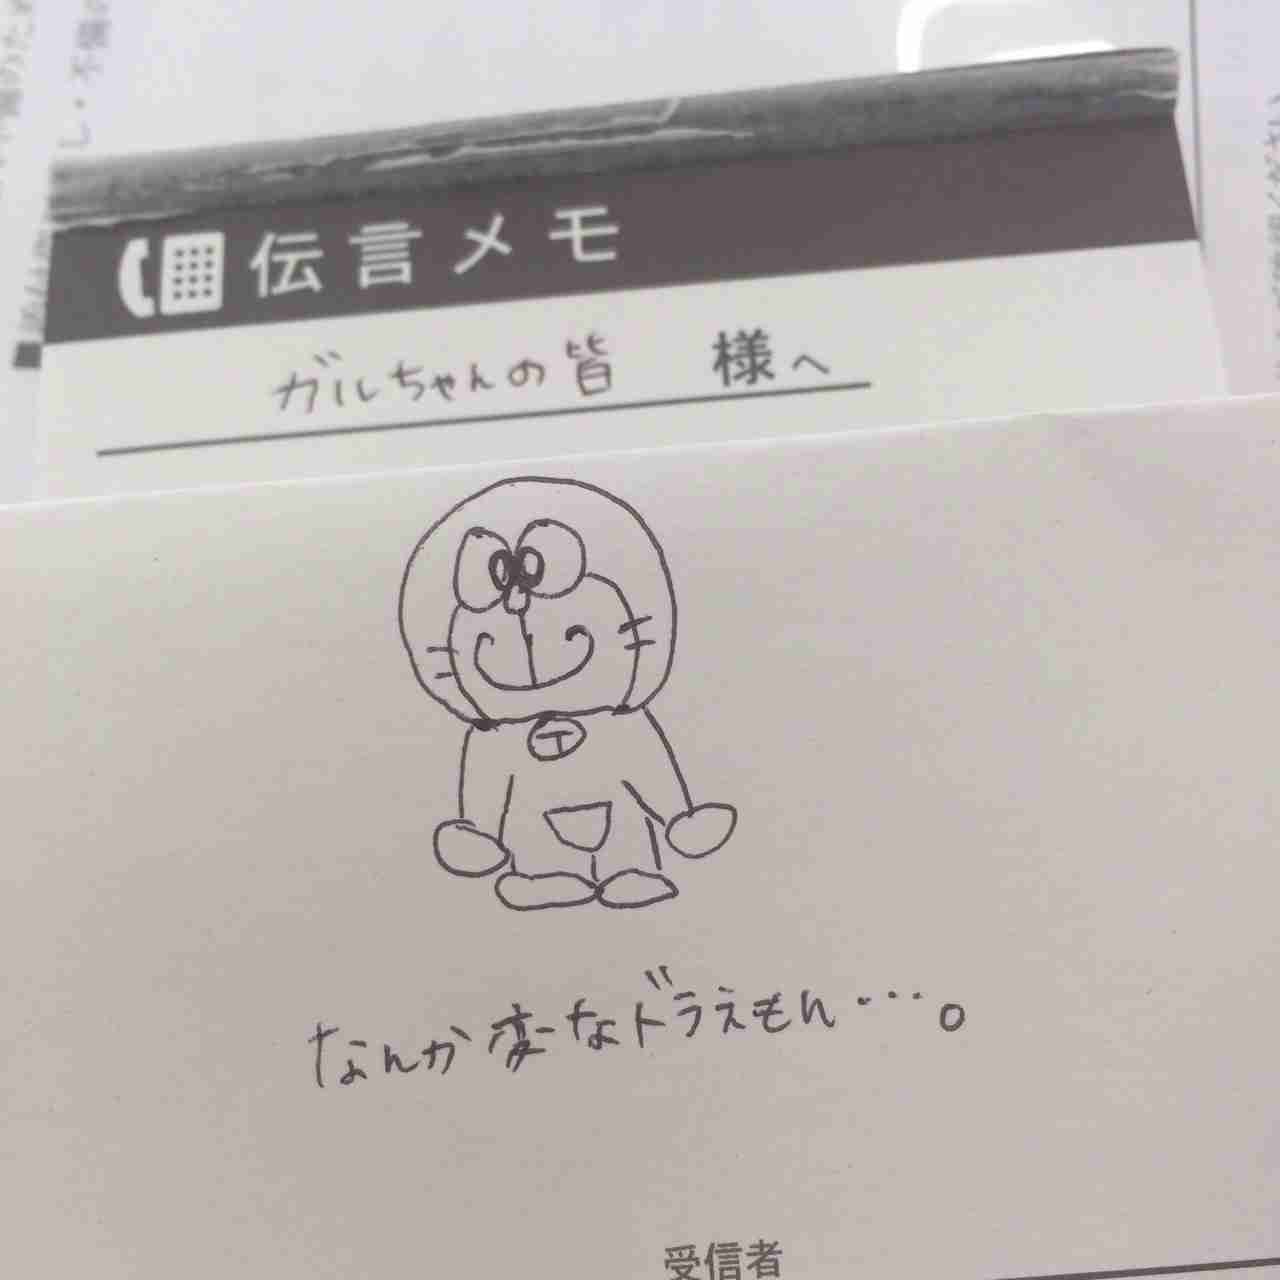 伝言メモ
ガルちゃんの皆 様へ
なんか変なドラえもん…。
受信者